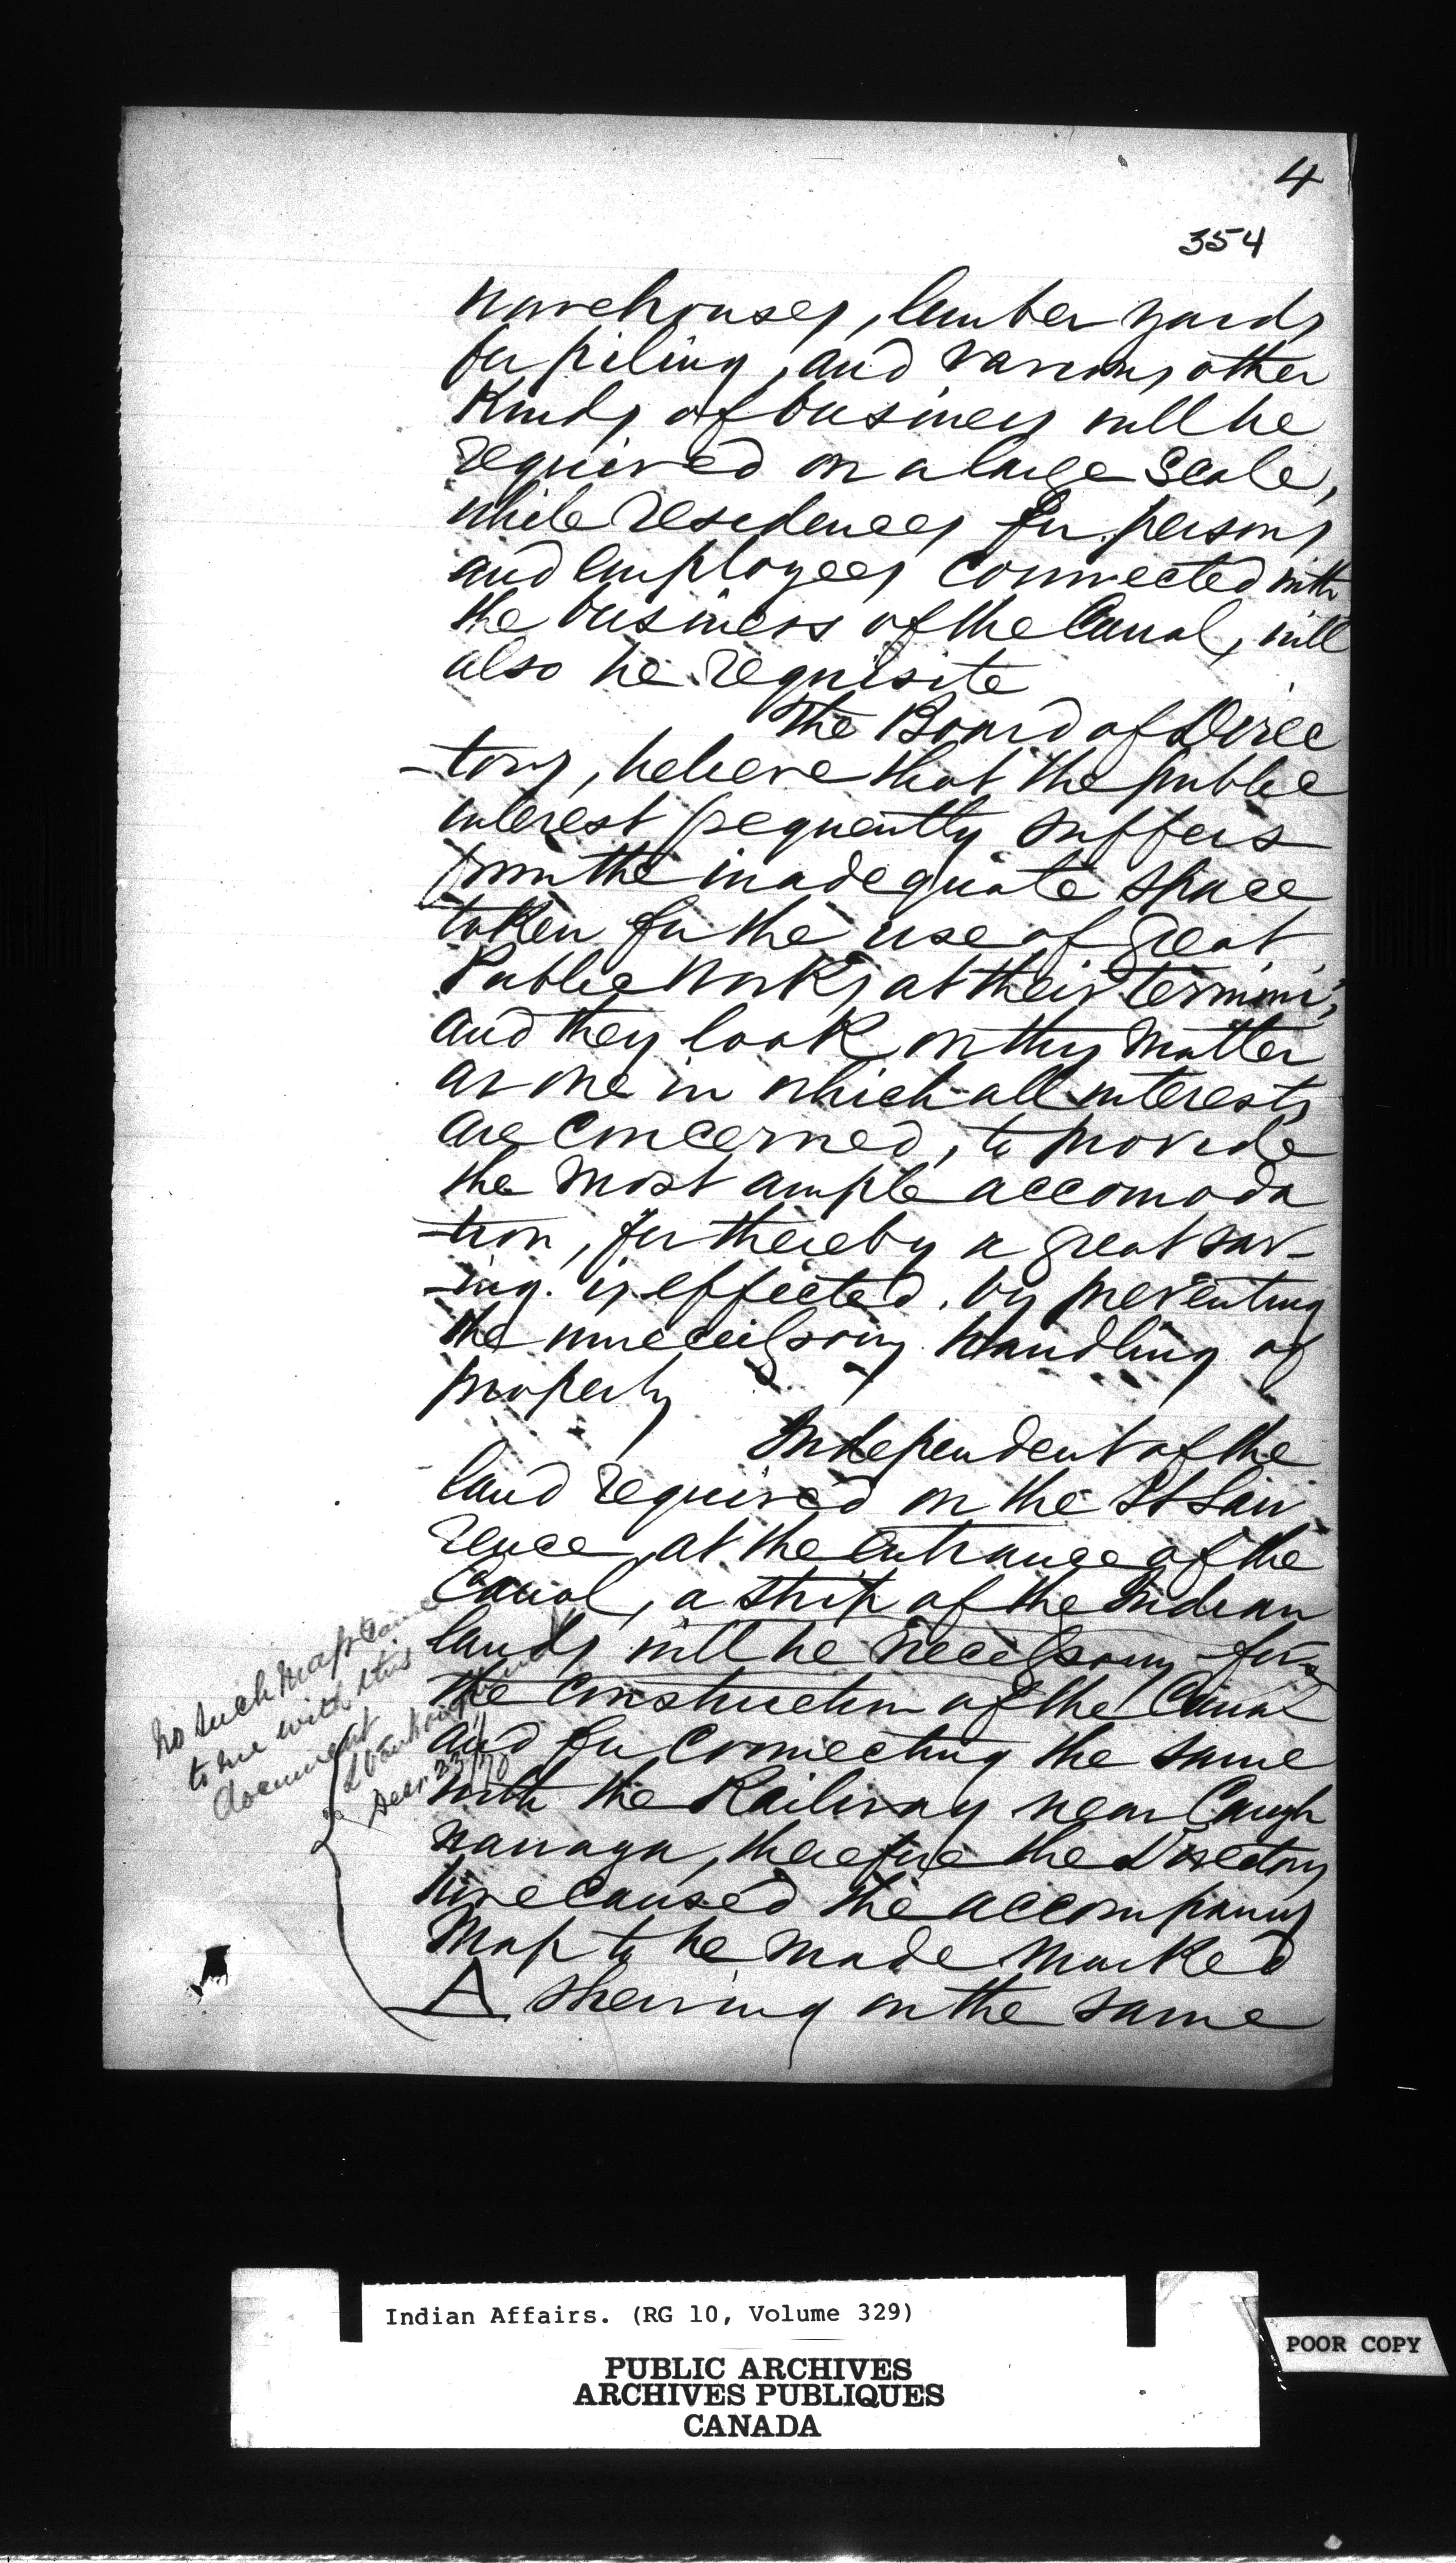 4
354
warehouses, lumber yards
for piling, and various other
Kinds of business will be
required on a large Scale,
while residences for persons
and employees connected with
the business of the Canal, will
also be requisite
The Board of Direc
-tors, believe that the public
interest frequently suffers
from the inadequate space
taken for the use of great
Public Works at their termini,
and they look on this matter
as one in which all interests
are concerned, to provide
the most ample accomoda
-tion, for thereby a great sav-
-ing. is effected. by preventing
the unnecessary handling of
property
Independent of the
land required on the St Law
rence, at the entrance of the
Canal, a strip of the Indian
lands will be necessary for
the construction of the Canal
and for connecting the same
with the Railway near Caugh
nawaga, therefore the Directors
have caused the accompanying
Map to be made marked
A shewing on the same
No such Map came
to me with this
document
Decr 23/70
Indian Affairs. (RG 10, Volume 329)
PUBLIC ARCHIVES
ARCHIVES PUBLIQUES
CANADA
POOR COPY